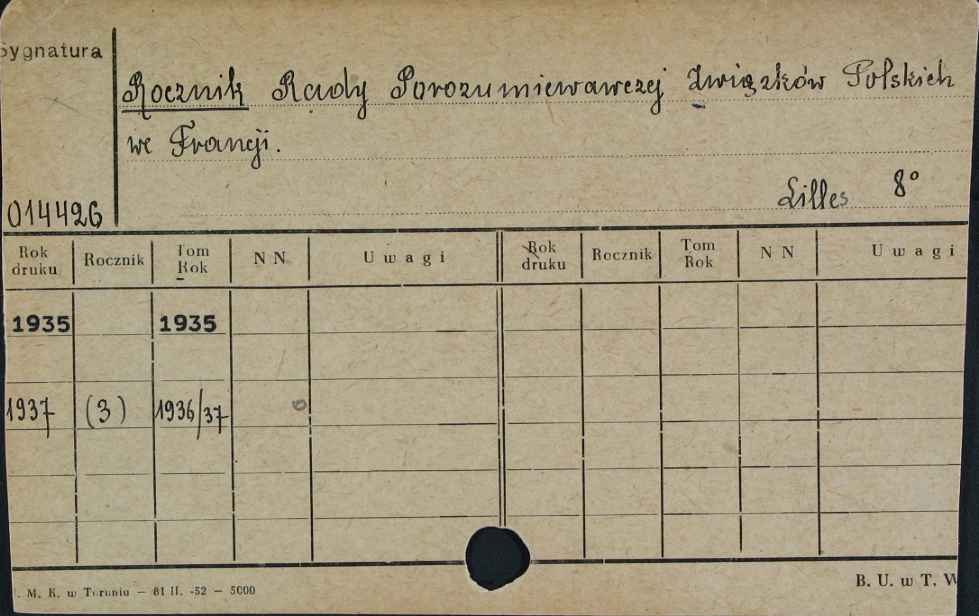 Sygnatura
Rocznik Rady Porozumiewawczej Związków Polskich
we Francji.
Lilles 8°
014426
Rok druku Rocznik Tom Rok N N Uwagi Rok druku Rocznik Tom Rok N N Uwagi
1935 1935
1937 (3) 1936/37
M. K. w Toruniu — 61 II. -52 — 5000
B. U. w T. W